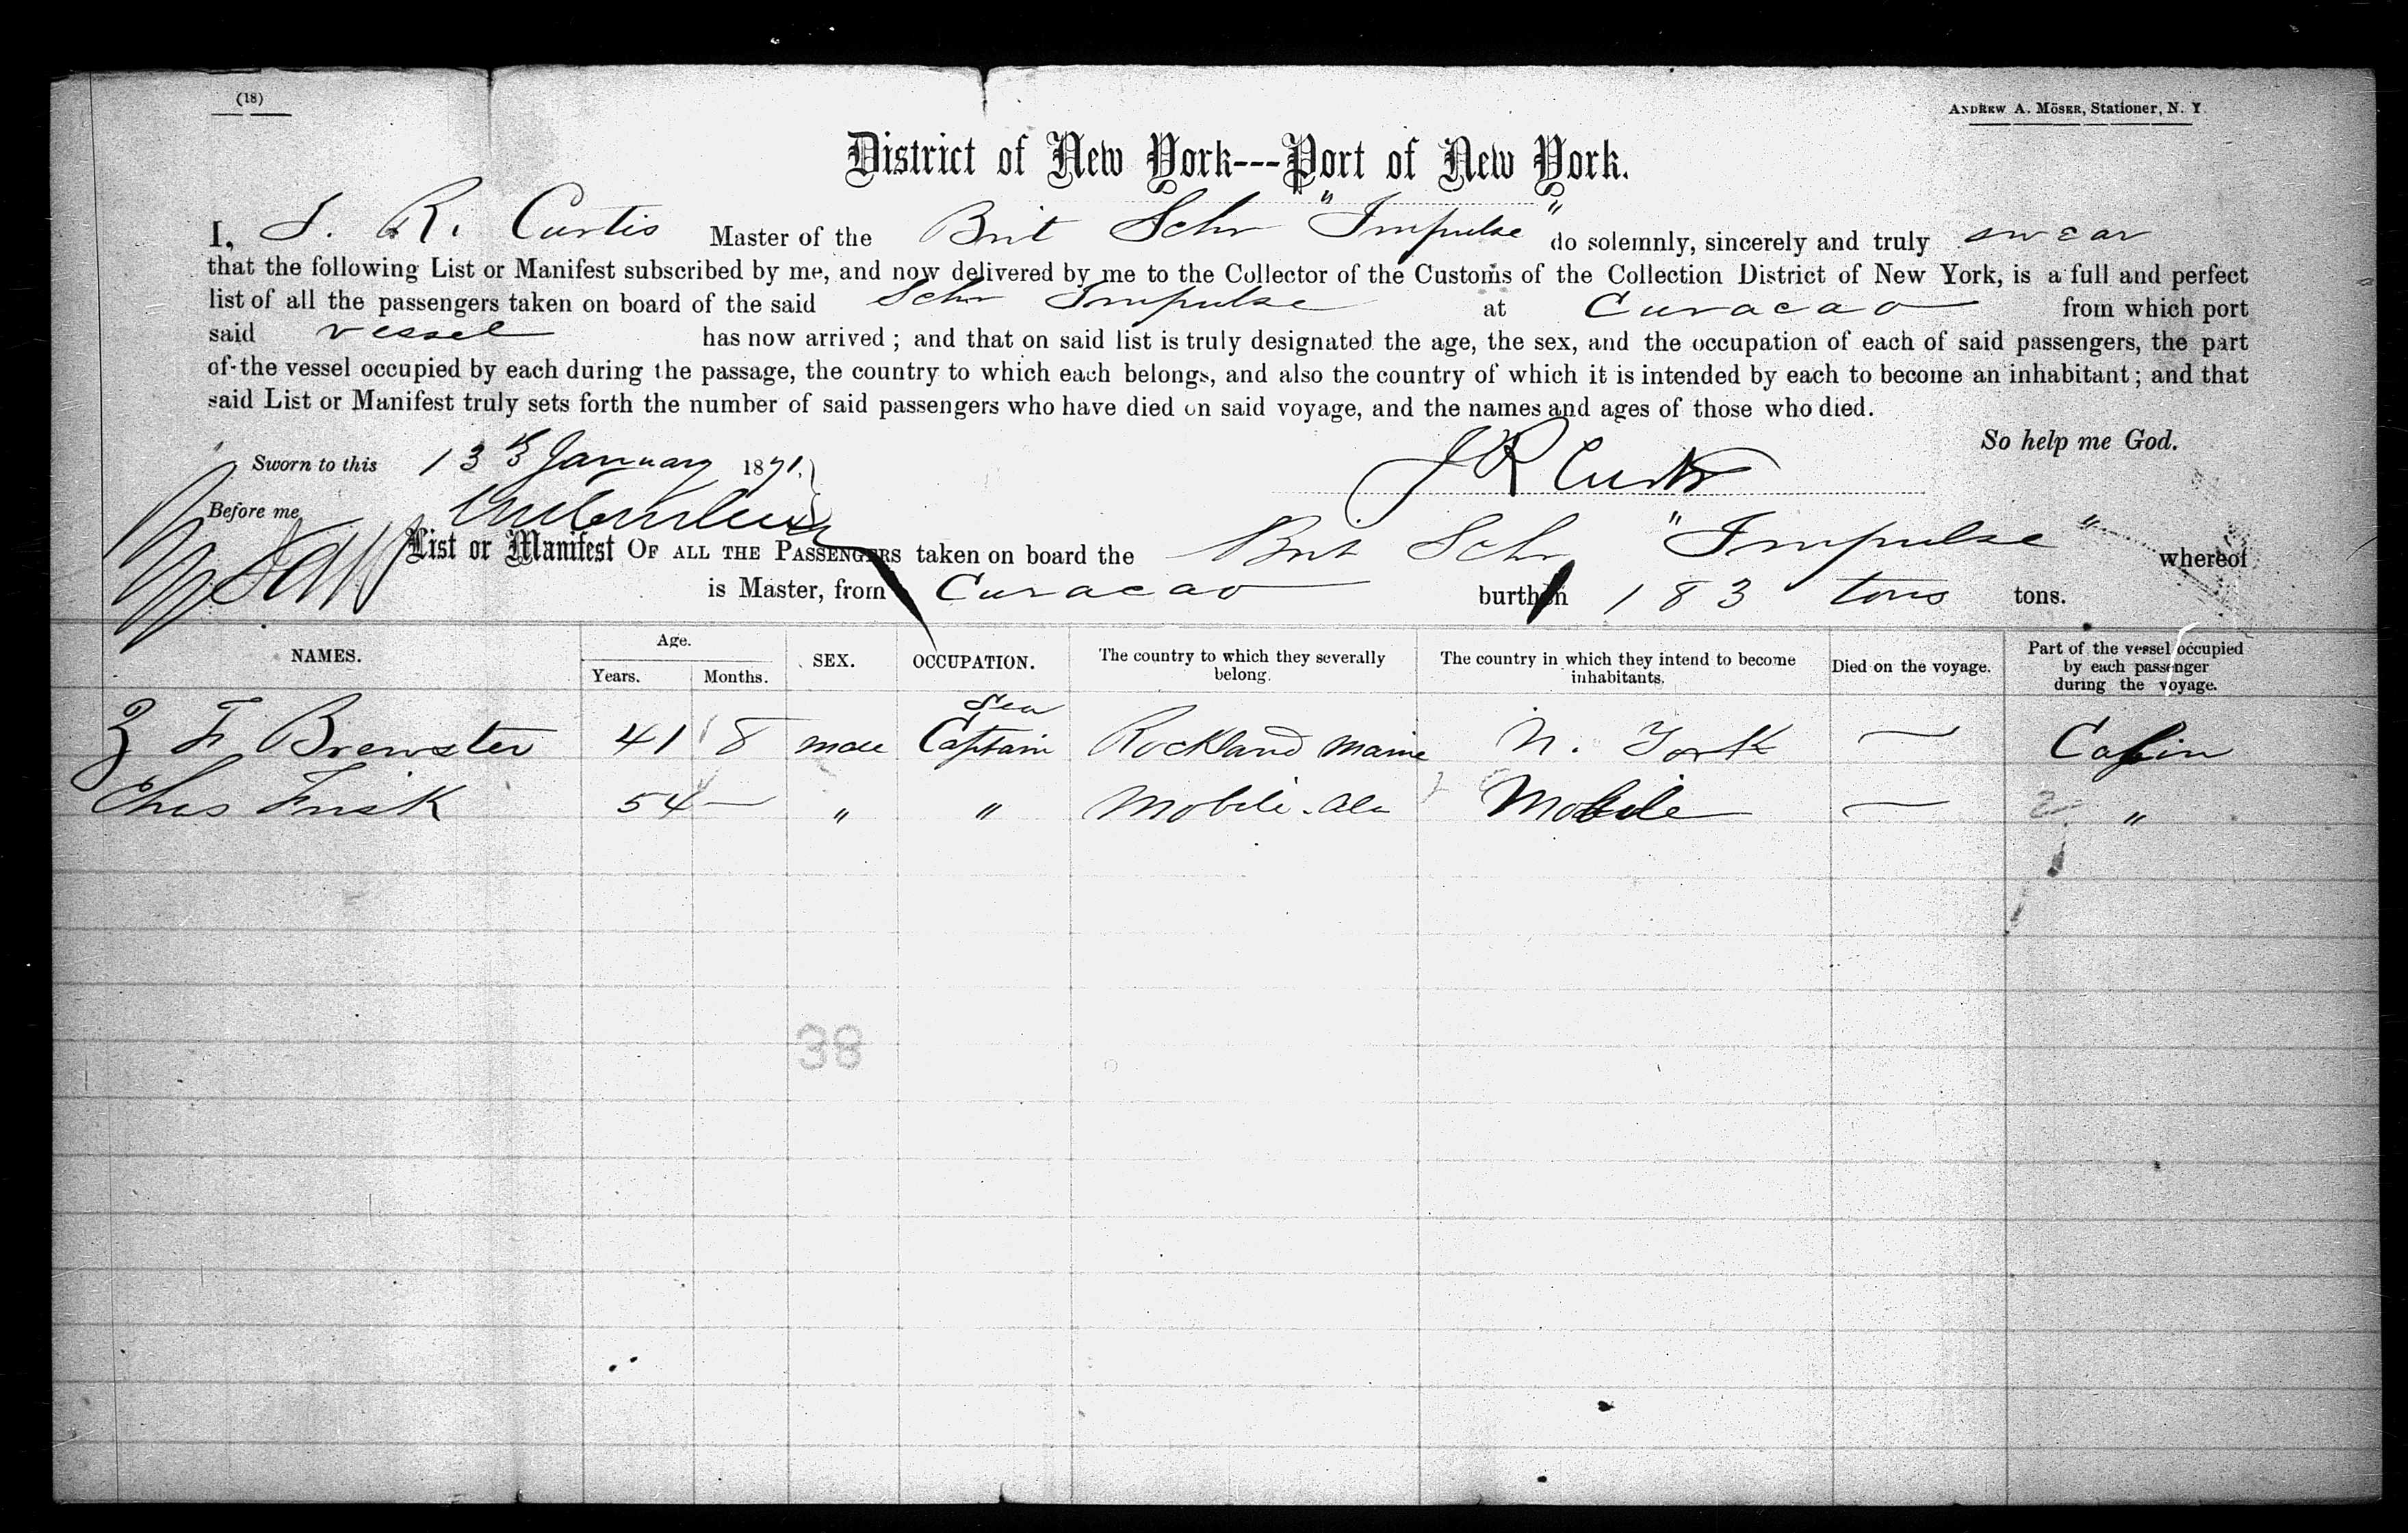 (18)
ANDREW A. MÖSER, Stationer, N. Y.
District of New York---Port of New York.
I, J. R. Curtis Master of the Brit Schr "Impulse" do solemnly, sincerely and truly swear
that the following List or Manifest subscribed by me, and now delivered by me to the Collector of the Customs of the Collection District of New York, is a full and perfect
list of all the passengers taken on board of the said Schr Impulse at Curacao from which port
said vessel has now arrived ; and that on said list is truly designated the age, the sex, and the occupation of each of said passengers, the part
of the vessel occupied by each during the passage, the country to which each belongs, and also the country of which it is intended by each to become an inhabitant ; and that
said List or Manifest truly sets forth the number of said passengers who have died on said voyage, and the names and ages of those who died.
So help me God.
Sworn to this 13 January 1871.
J R Curtis
Before me
List or Manifest OF ALL THE PASSENGERS taken on board the Brit Schr "Impulse" whereof
is Master, from Curacao burthen 183 tons tons.
NAMES. Age. Years. Months. SEX. OCCUPATION. The country to which they severally belong. The country in which they intend to become inhabitants. Died on the voyage. Part of the vessel occupied by each passenger during the voyage.
Z F Brewster 41 8 male Sea Captain Rockland Maine N. York — Cabin
Chas Frisk 54 — " " Mobile. Ala Mobile — "
38